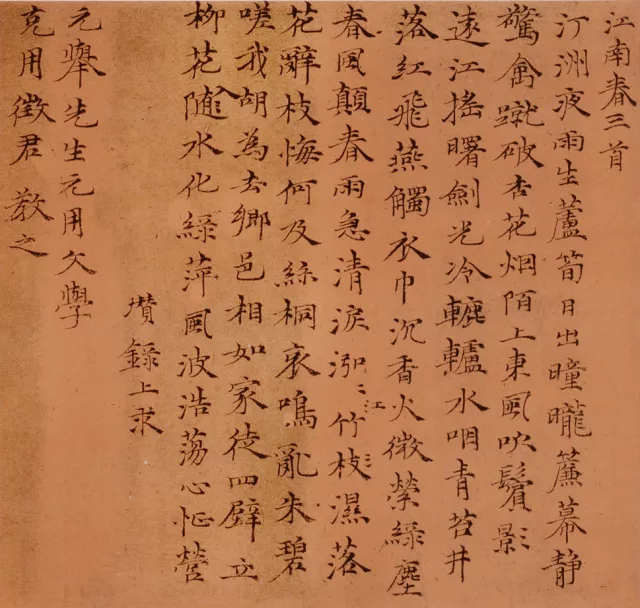 江南春三首
汀洲夜雨生蘆筍日出曈曨簾幕静
驚禽蹴破杏花烟陌上東風吹鬢影
遠江揺曙劍光冷轆轤水咽青苔井
落红飛燕觸衣巾沉香火微縈緑塵
春風顛春雨急清淚泓泓江竹枝濕落
花辭枝悔何及絲桐哀鳴亂朱碧
嗟我胡為去鄉邑相如家徒四壁立
柳花隨水化緑萍風波浩蕩心怔營
瓚録上求
元舉先生元用文學
克用徵君教之